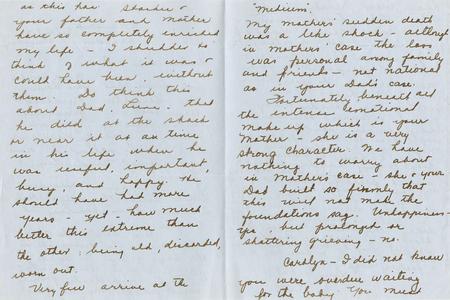 as this has shocked
your father and mother
have so completely enriched
my life - I shudder to
think of what it was &
could have been without
them. Do think this
about Dad, June. that
he died at the shack
or near it at an time
in his life when he
was useful, important,
busy, and happy. He
should have had more
years - yet - how much
better this extreme than
the other: being old, discarded,
worn out.
Very few arrive at the
medium.
My mothers' sudden death
was a like shock - although
in mothers' case the loss
was personal among family
and friends - not national
as in your Dad's case.
Fortunately beneath all
the intense emotional
make up which is your
Mother - she is a very
strong character. We have
nothing to worry about
in Mother's case - she & your
Dad built so firmly that
this will not make the
foundations sag. Unhappiness -
yes, but prolonged or
shattering grieving - no.
Carolyn - I did not know
you were overdue waiting
for the baby. You must